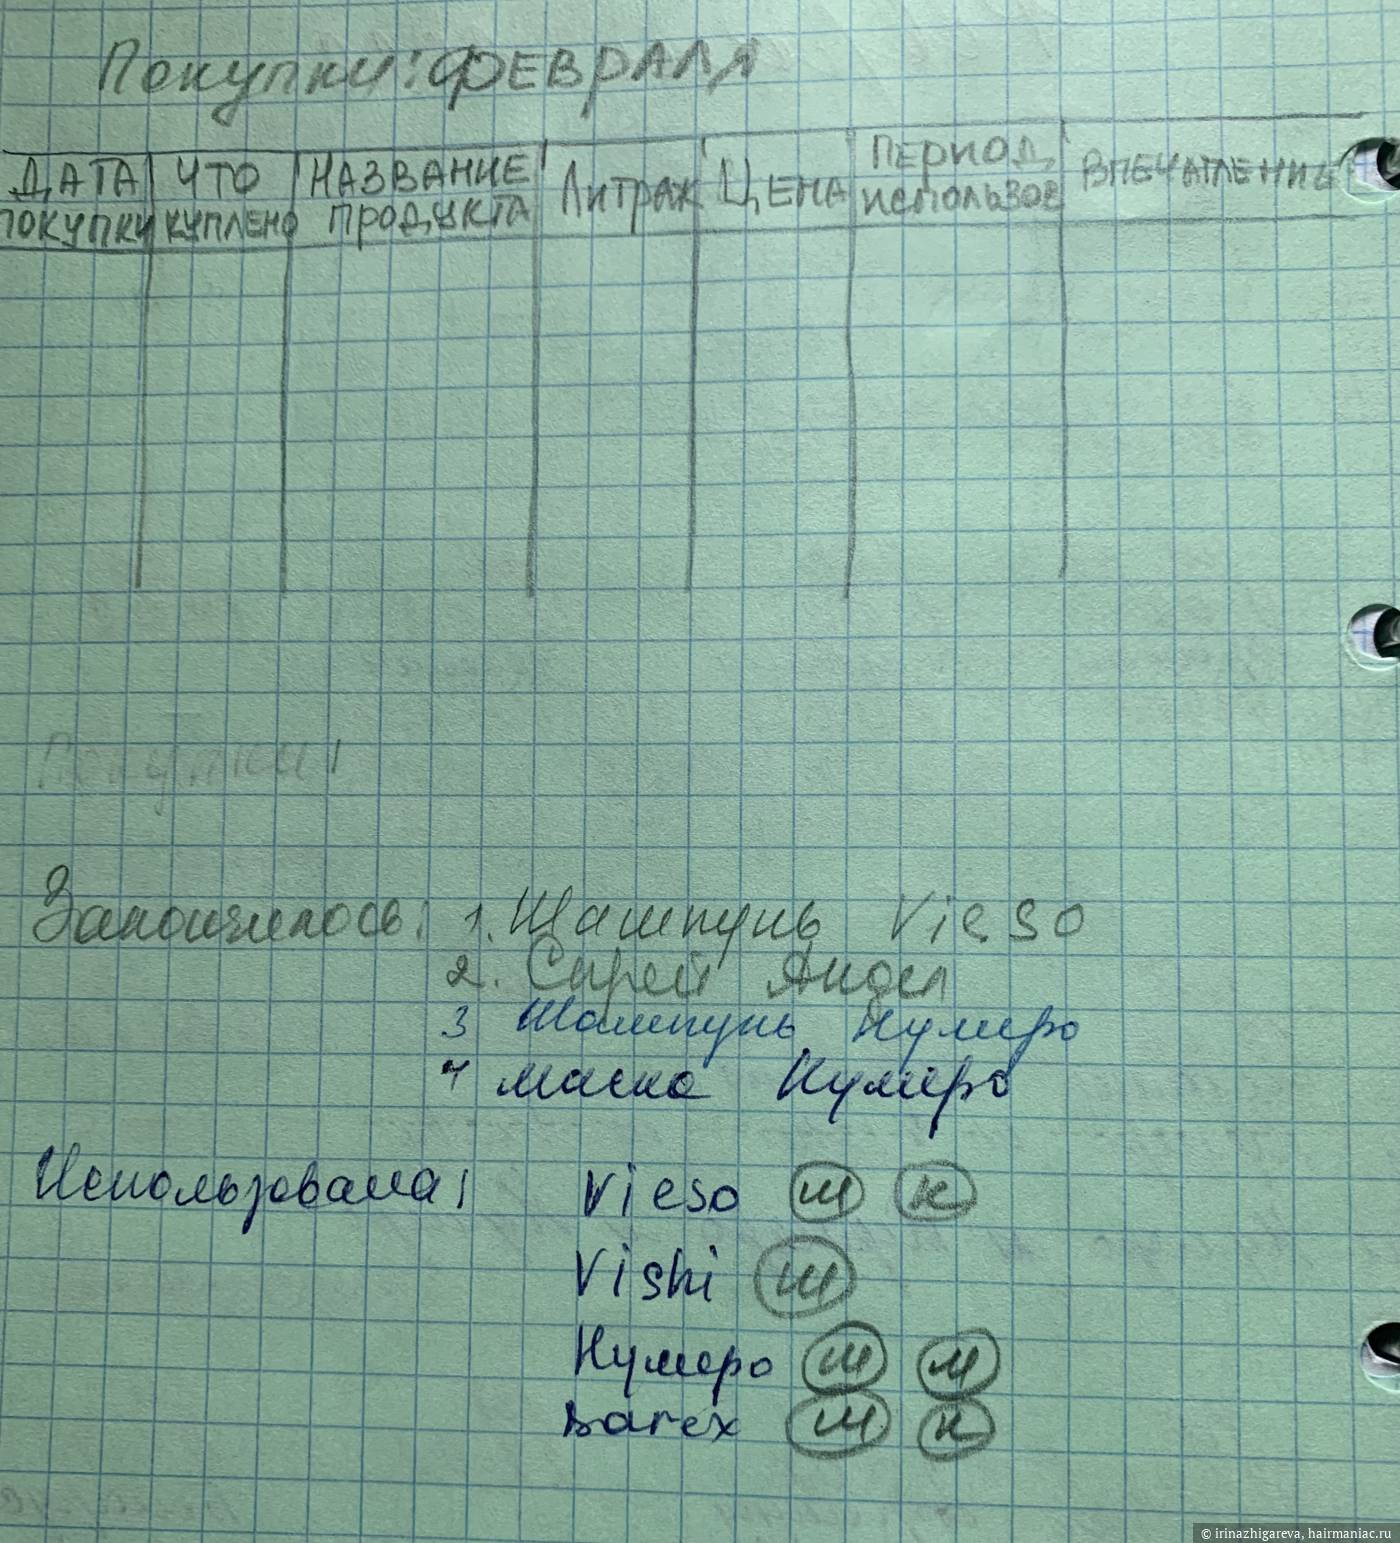 Покупки: ФЕВРАЛЯ
ДАТА ПОКУПКИ
ЧТО КУПЛЕНО
НАЗВАНИЕ ПРОДУКТА
Литраж
ЦЕНА
ПЕРИОД использов
ВПЕЧАТЛЕНИЕ
Покупки
Закончилось: 1. Шампунь Vieso
2. Спрей Андел
3 Шампунь Нумеро
4 маска Нумеро
Использовала: Vieso ш к
Vishi ш
Нумеро ш м
Barex ш к
© irinazhigareva, hairmaniac.ru